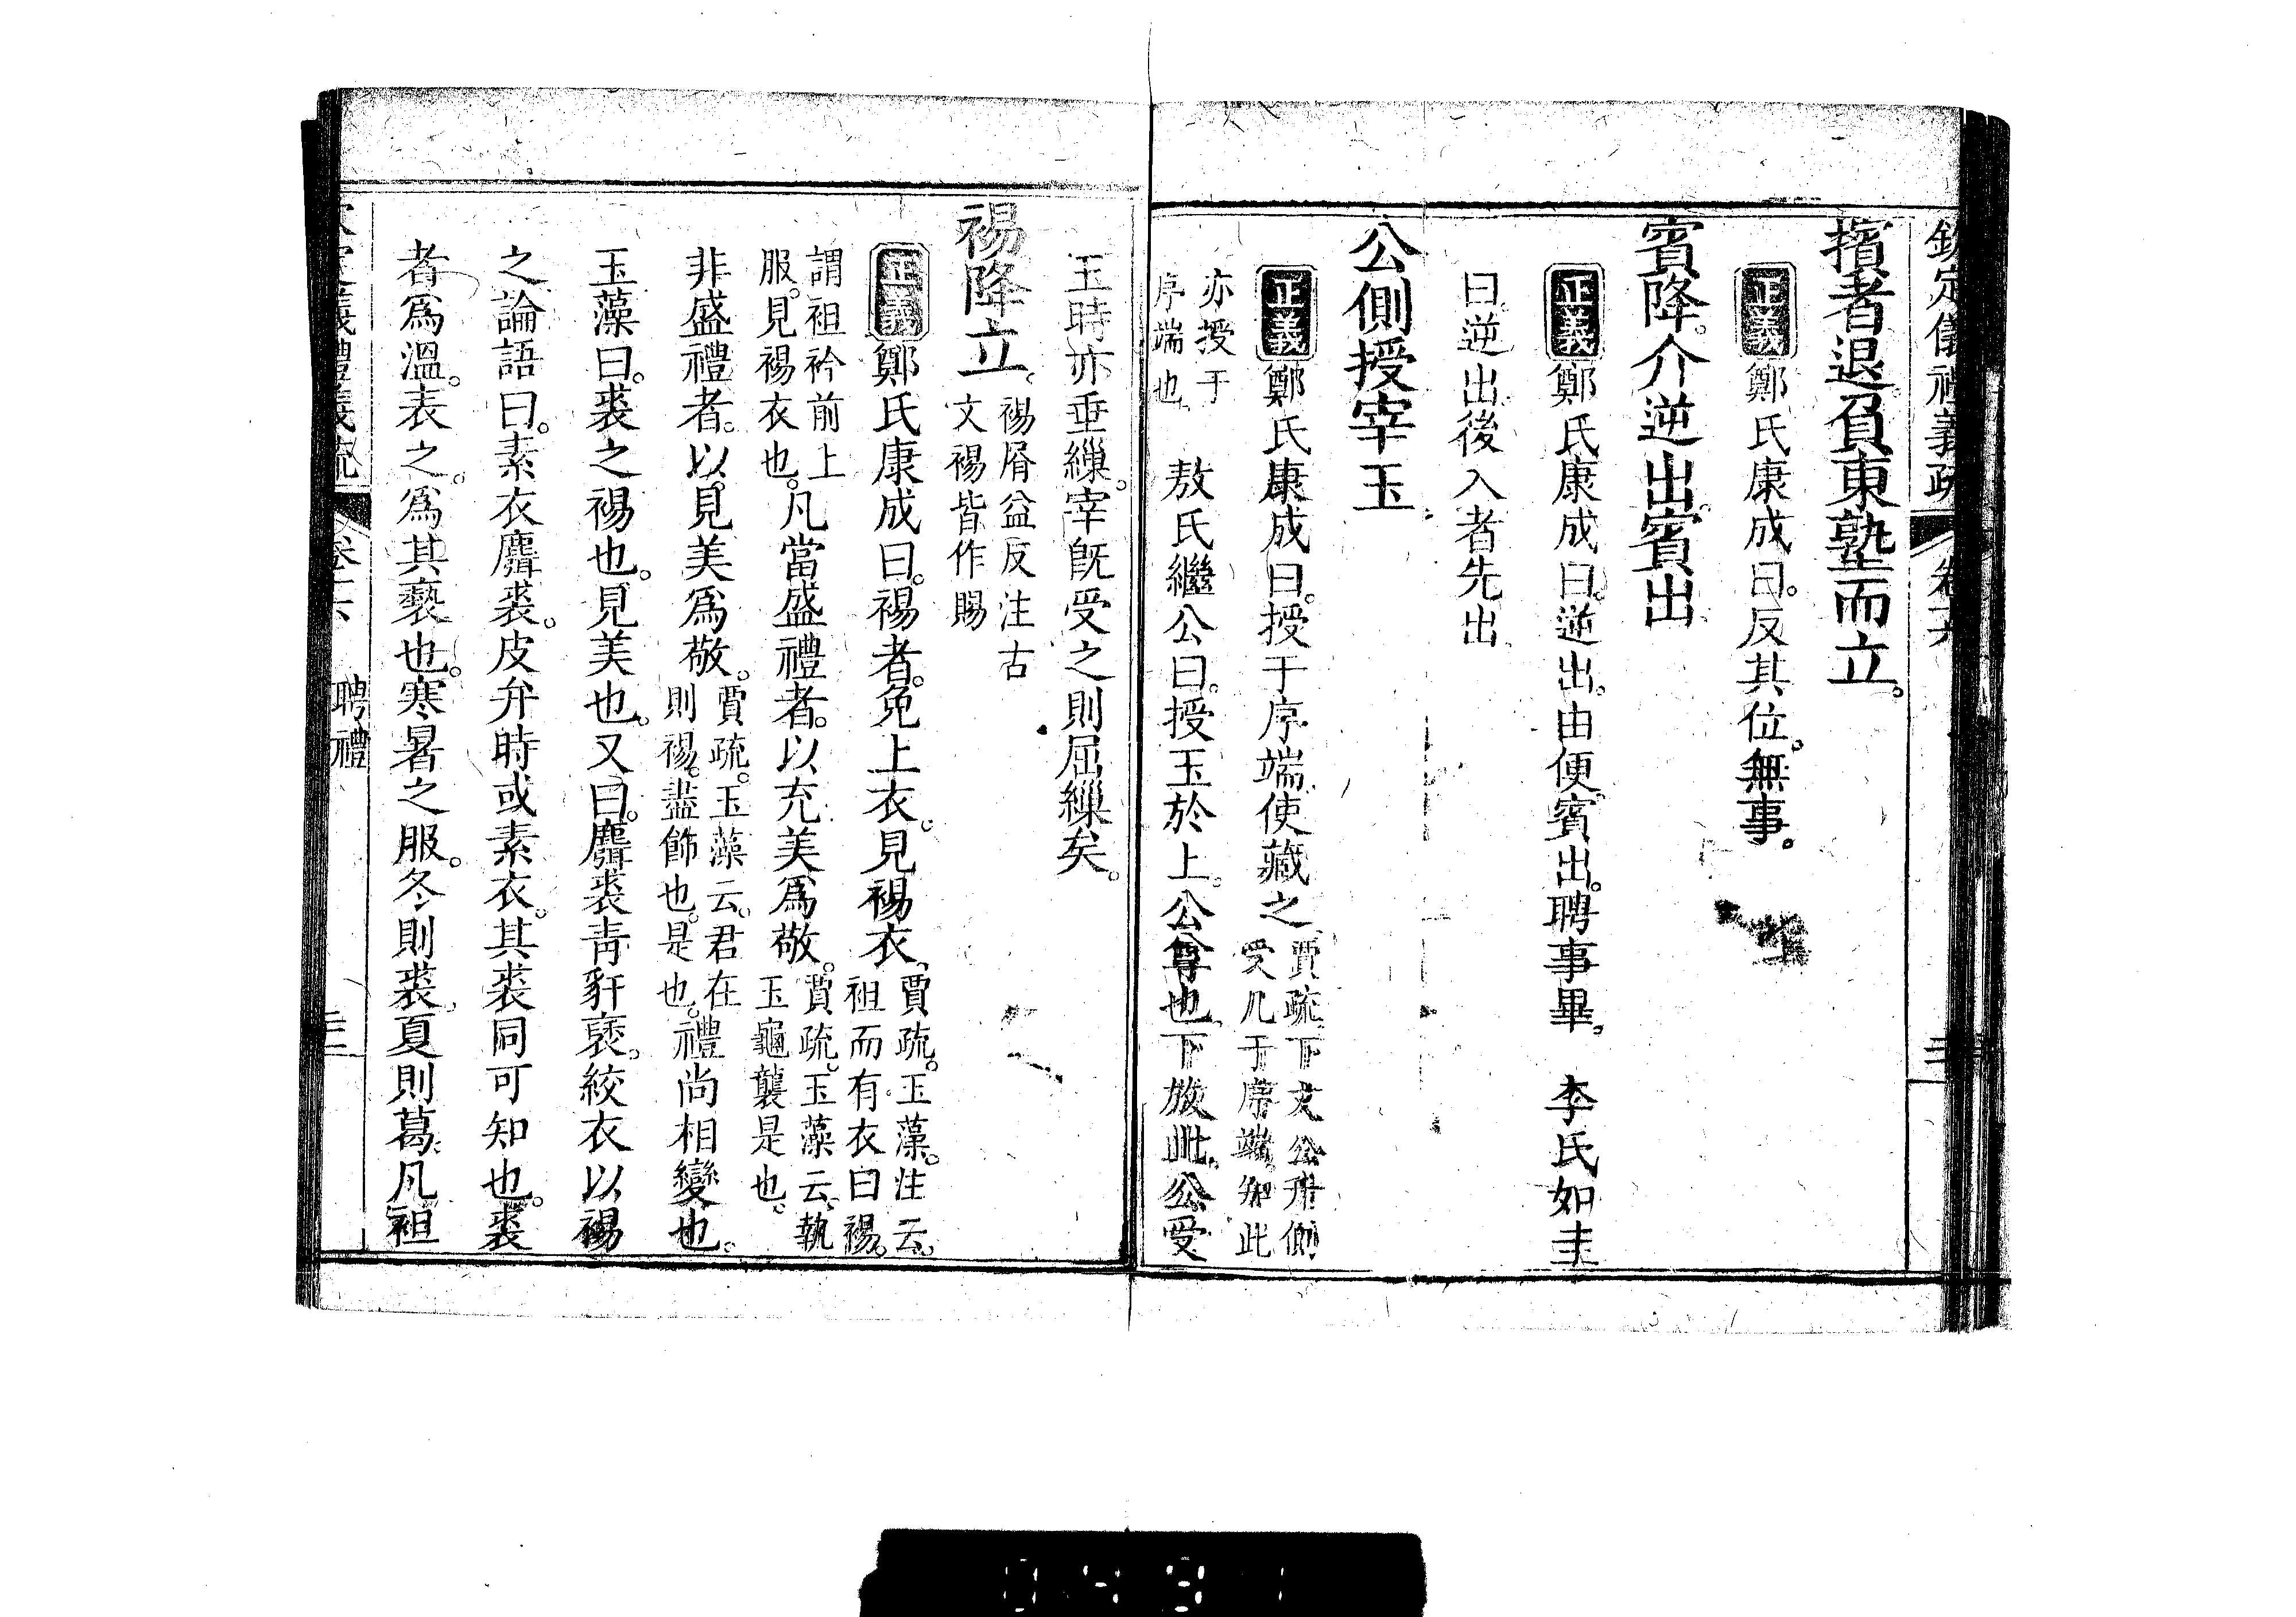 欽定儀禮義疏 卷十六
擯者退負東塾而立。
正義鄭氏康成曰。反其位。無事。
賓降。介逆出。賓出
正義鄭氏康成曰。逆出。由便。賓出。聘事畢。 李氏如圭
曰。逆出後入者先出
公側授宰玉
正義鄭氏康成曰。授于序端。使藏之。
賈疏。下文公升側
受几于序端。知此
亦授于
序端也
敖氏繼公曰。授玉於上。公尊也。下放此。公受
玉時亦垂繅。宰旣受之則屈繅矣。
裼降立。
裼屑益反注古
文裼皆作賜
正義鄭氏康成曰。裼者。免上衣。見裼衣。
賈疏。玉藻。注云。
袒而有衣曰裼。
謂袒衿前上
服。見裼衣也。
凡當盛禮者。以充美爲敬。
賈疏。玉藻云。執
玉龜襲是也。
非盛禮者。以見美爲敬。
賈疏。玉藻云。君在
則裼。盡飾也。是也。
禮尚相變也。
玉藻曰。裘之裼也。見美也。又曰。麛裘靑豻褎。絞衣以裼
之。論語曰。素衣麛裘。皮弁時或素衣。其裘同可知也。裘
者爲溫。表之。爲其褻也。寒暑之服。冬則裘。夏則葛。凡袒
義禮義疏 卷十六 聘禮